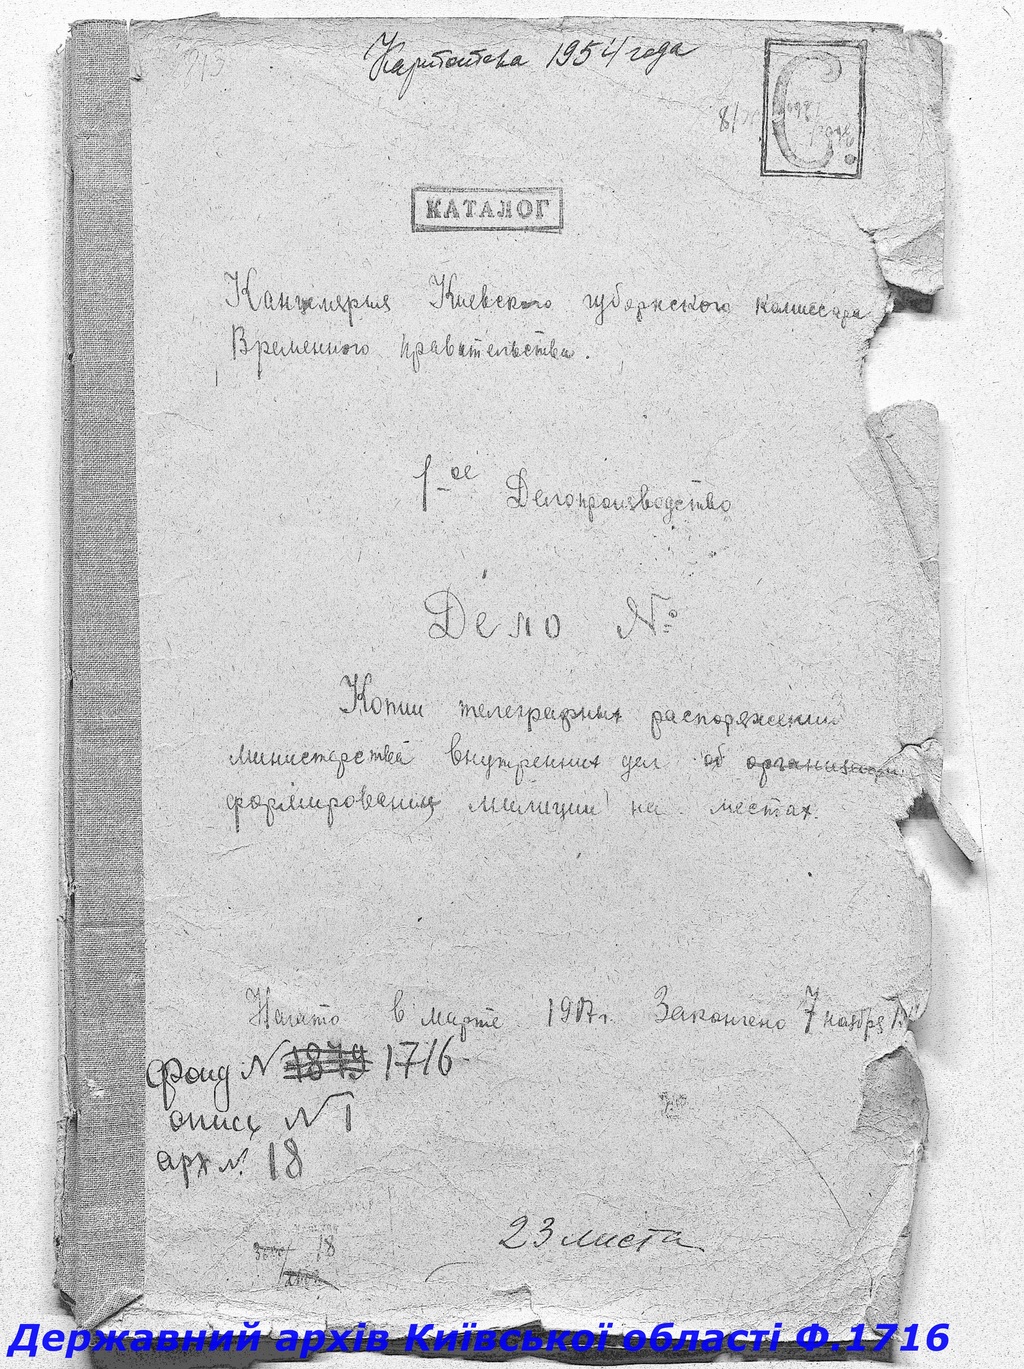 Картотека 1954 года
С.
КАТАЛОГ
Канцелярия Киевского губернского комиссара
Временного правительства.
1-ое Делопроизводство
Дело №
Копии телеграфных распоряжений
министерства внутренних дел об организации
формирования милиции на местах.
Начато в марте 1917 г. Закончено 7 ноября
фонд N 1879 1716
опись N 1
арх N. 18
18
23 листа
Державний архів Київської області Ф.1716